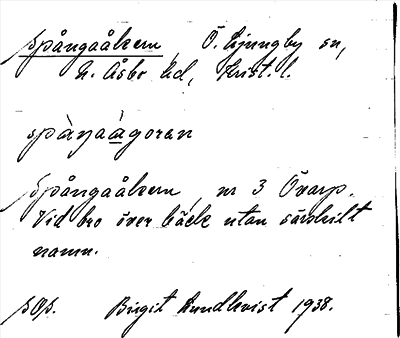 Spångaåkern, Ö. Ljungby sn,
N. Åsbo hd, Krist. l.
spàŋaàgoren
Spångaåkern, nr 3 Övarp.
Vid bro över bäck utan särskilt
namn.
Birgit Lundkvist 1938.